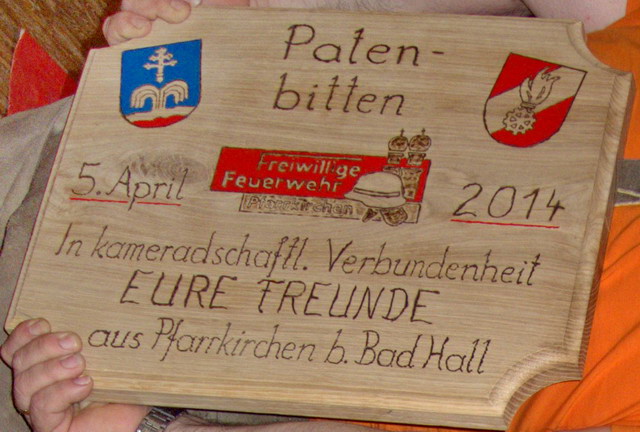 Paten-
bitten
5. April
Freiwillige
Feuerwehr
Pfarrkirchen
2014
In kameradschaftl. Verbundenheit
EURE FREUNDE
aus Pfarrkirchen b. Bad Hall